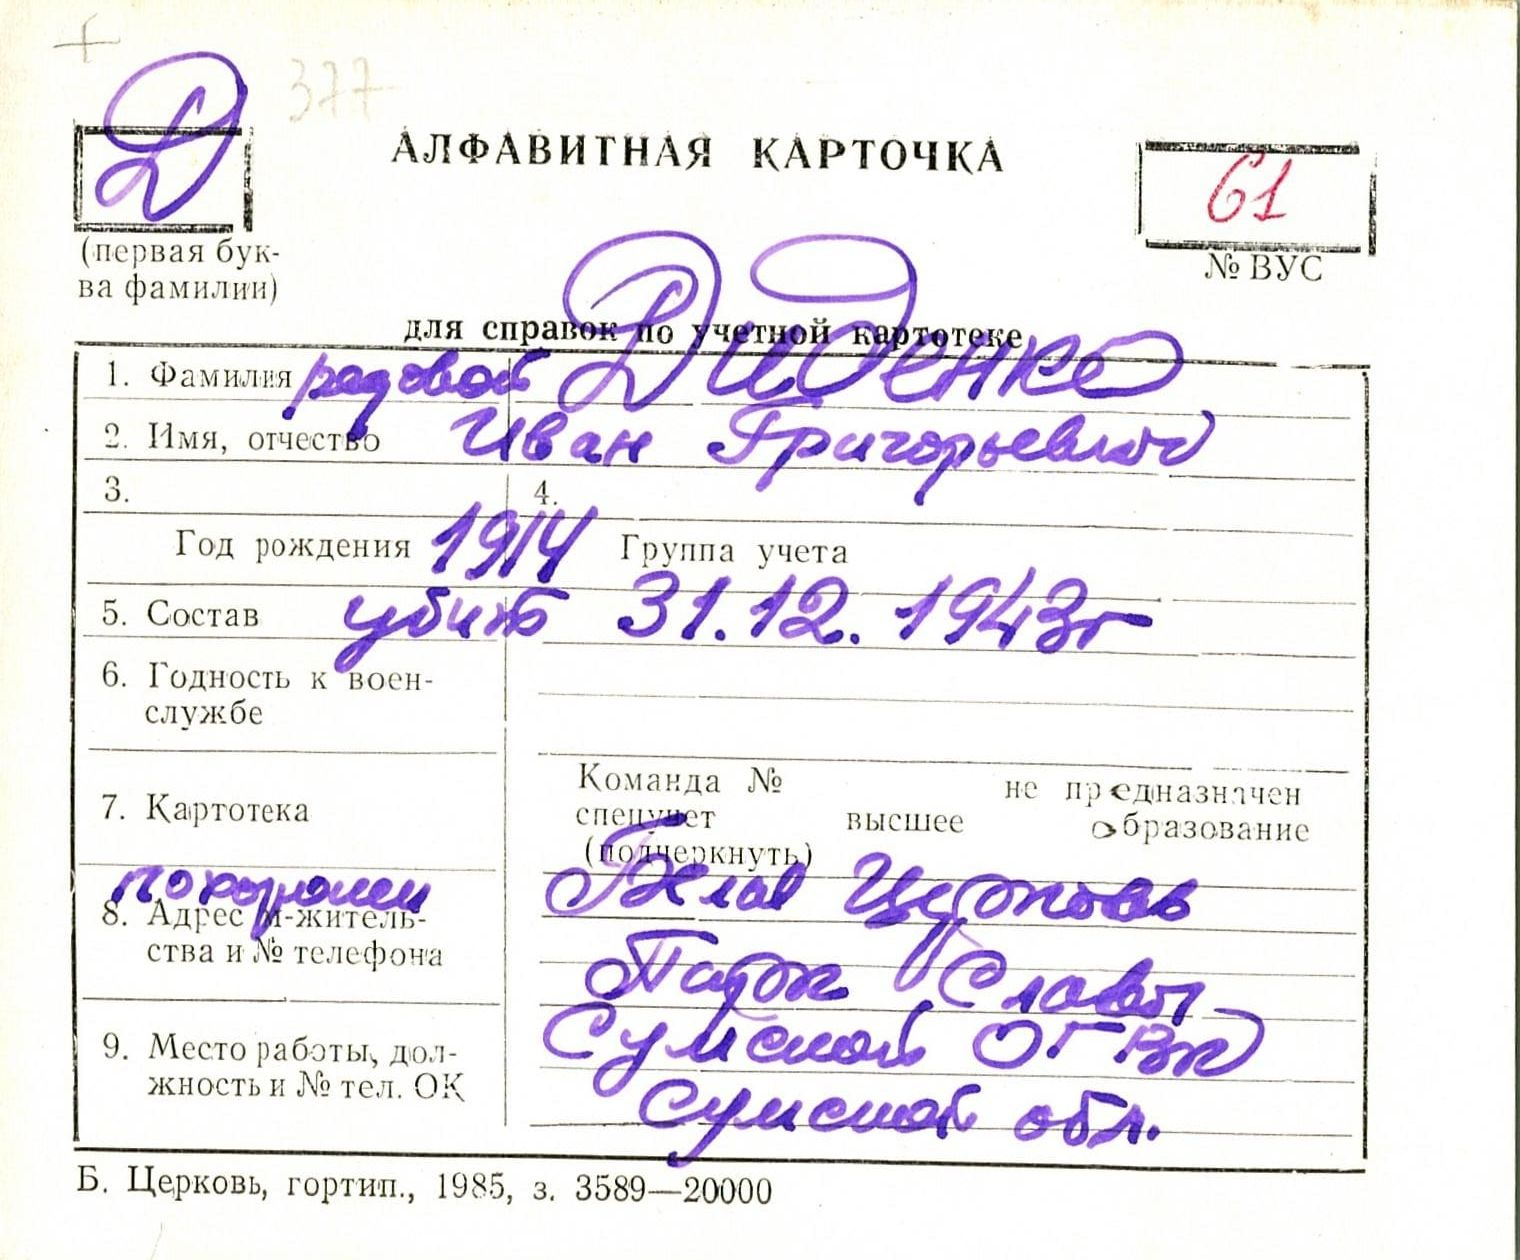 377
Д
АЛФАВИТНАЯ КАРТОЧКА
61
(первая бук-
ва фамилии)
№ ВУС
для справок по учетной картотеке
1. Фамилия рядовой Диденко
2. Имя, отчество Иван Григорьевич
3. 4.
Год рождения 1914 Группа учета
5. Состав убит 31.12.1943г
6. Годность к воен-
службе
Команда № не предназначен
7. Картотека
спецучет высшее образование
(подчеркнуть)
похоронен Белая Церковь
8. Адрес м-житель-
ства и № телефона
Парк Славы
Сумской ОГВК
9. Место работы, дол-
жность и № тел. ОК
Сумской обл.
Б. Церковь, гортип., 1985, з. 3589—20000